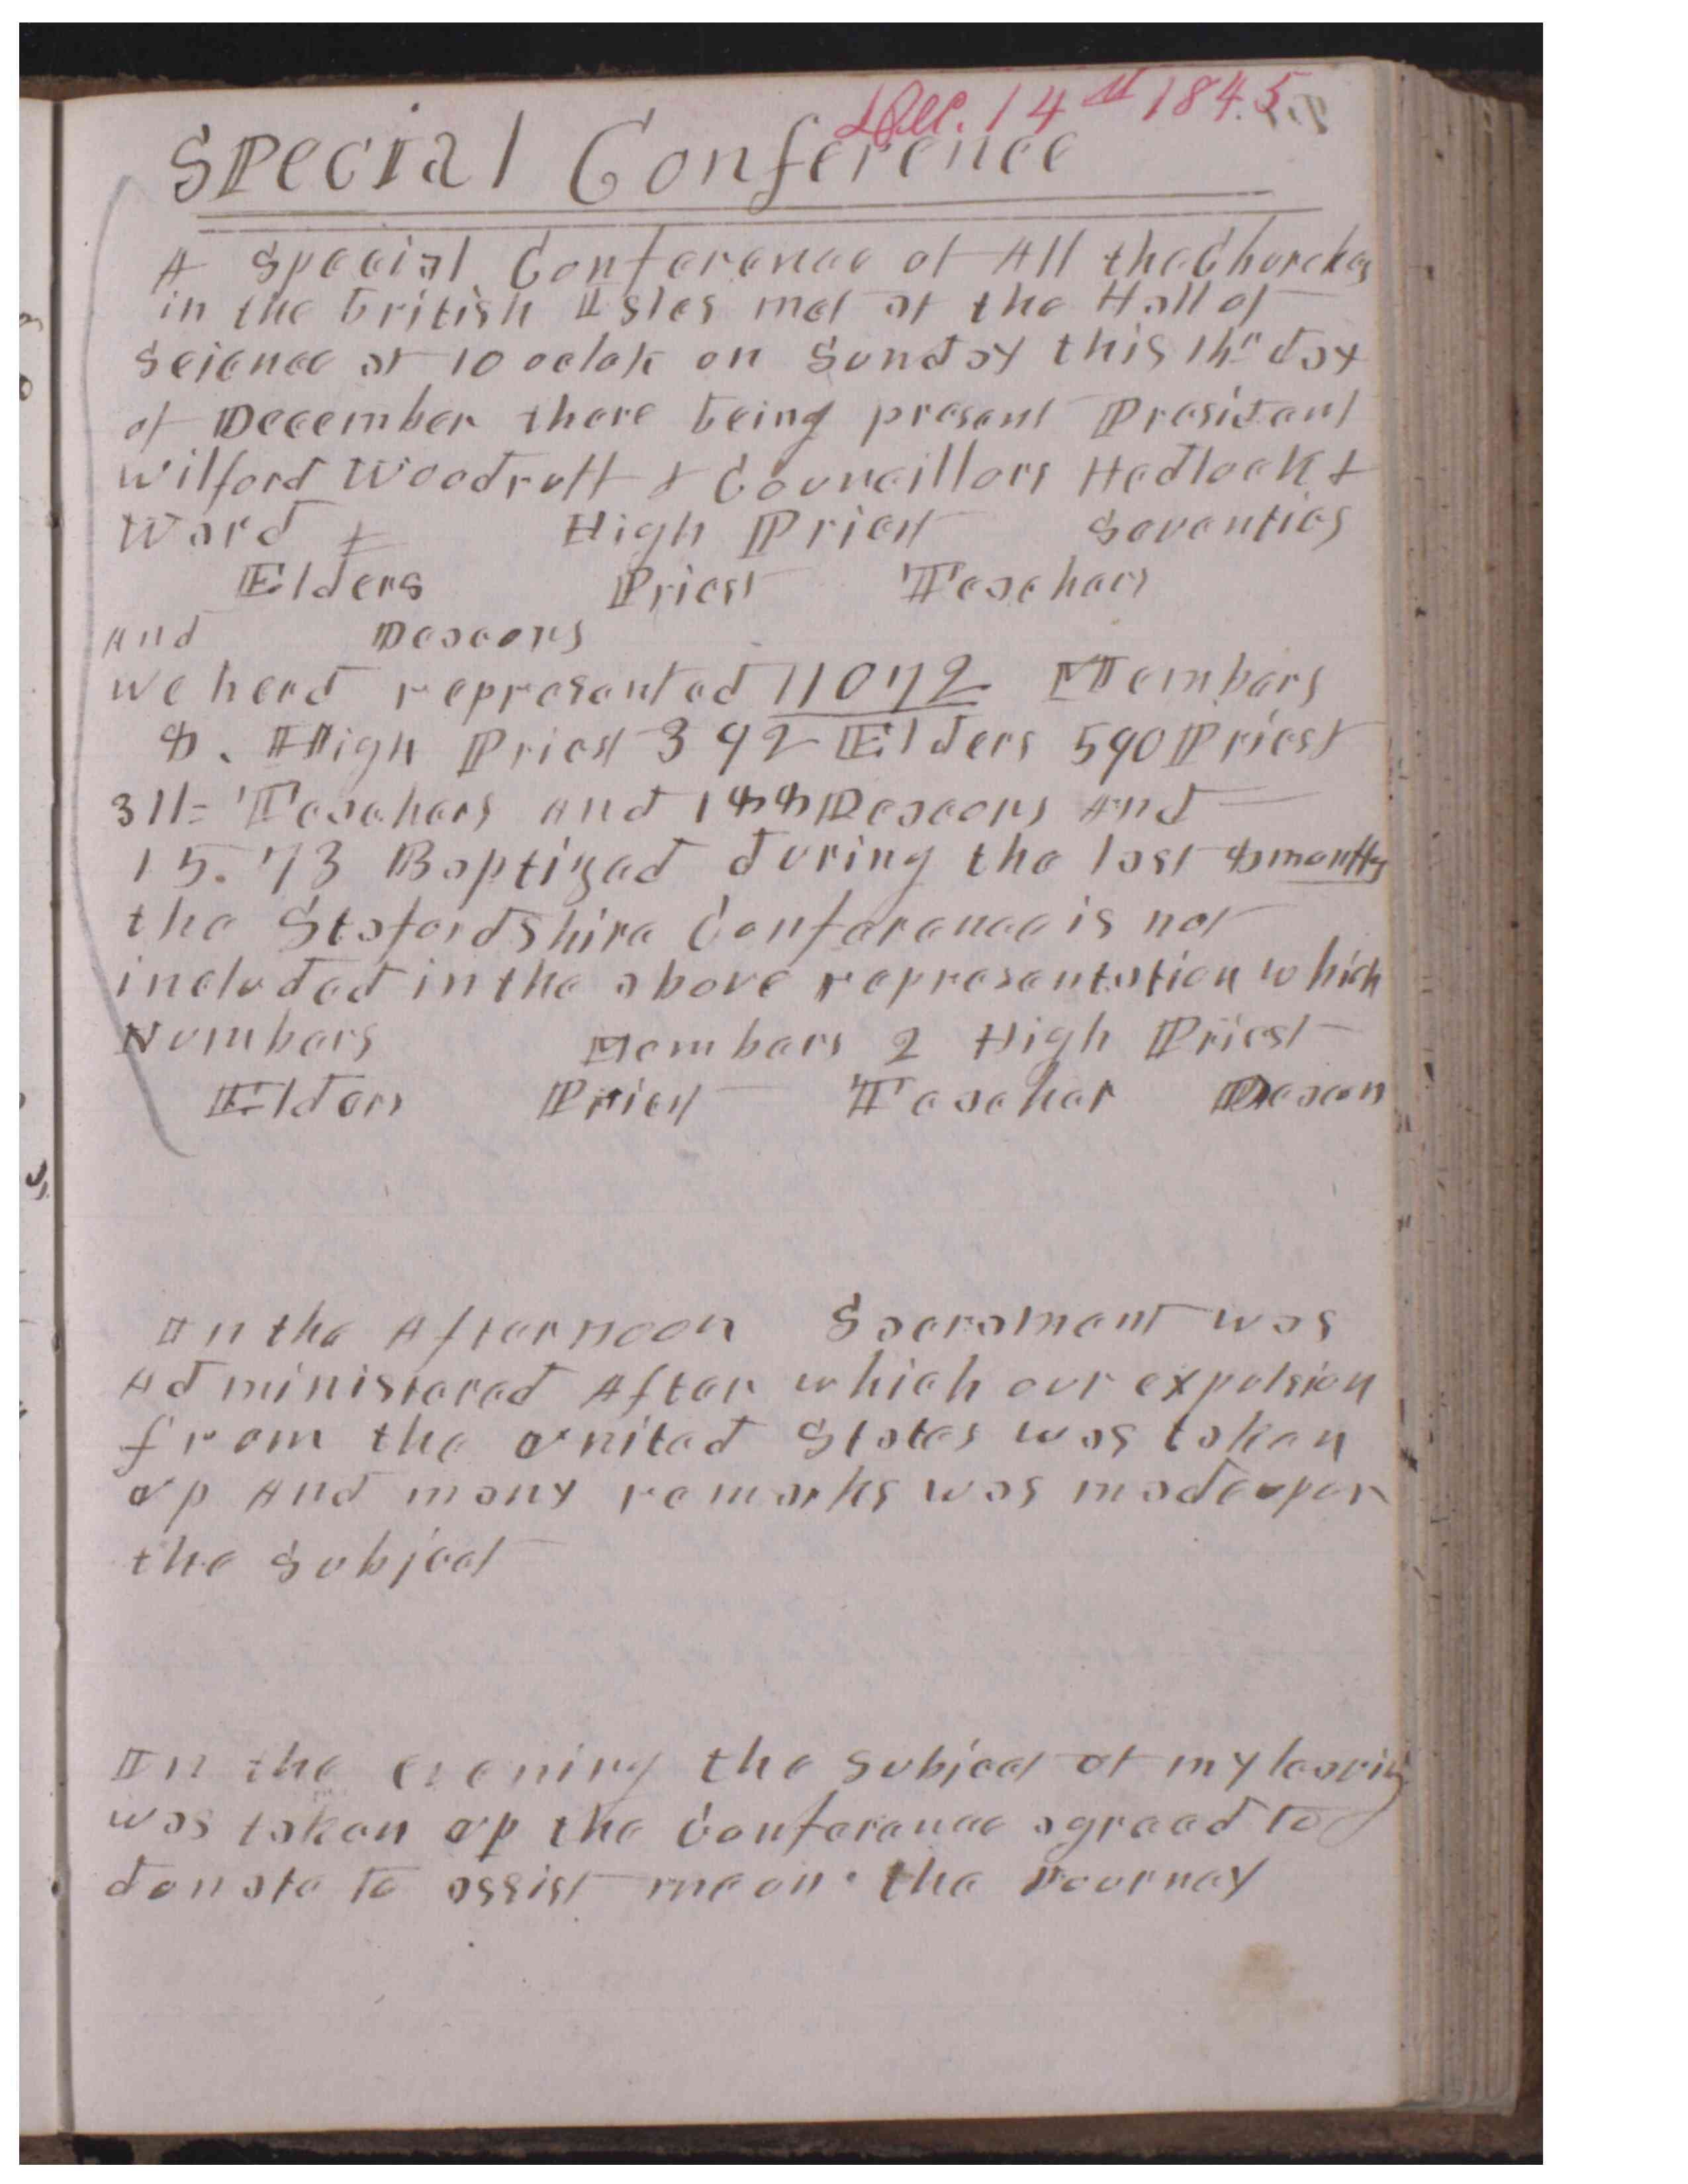 Dec. 14th 1845
Special Conference
A Special Conference of All the Churches
in the british Isles met at the Hall of
Science at 10 oclok on Sunday this 14th day
of December there being present Presidant
Wilford Woodruff & Councillors Hedlock &
Ward & High Priest Seventies
Elders Priest Teachers
And Deacons
we herd represented 11072 Members
8. High Priest 392 Elders 590 Priest
311 Teachers and 188 Deacons And
15.73 Baptized during the last 8 months
the StafordShire Conference is not
included in the above representation which
Numbers Members 2 High Priest
Elders Priest Teacher Deacon
In the Afternoon Sacrament was
Administered After which our expulsion
from the united States was taken
up And many remarks was made upon
the Subject
In the evening the Subject of my leaving
was taken up the Conference agreed to
donate to assist me on the Journey